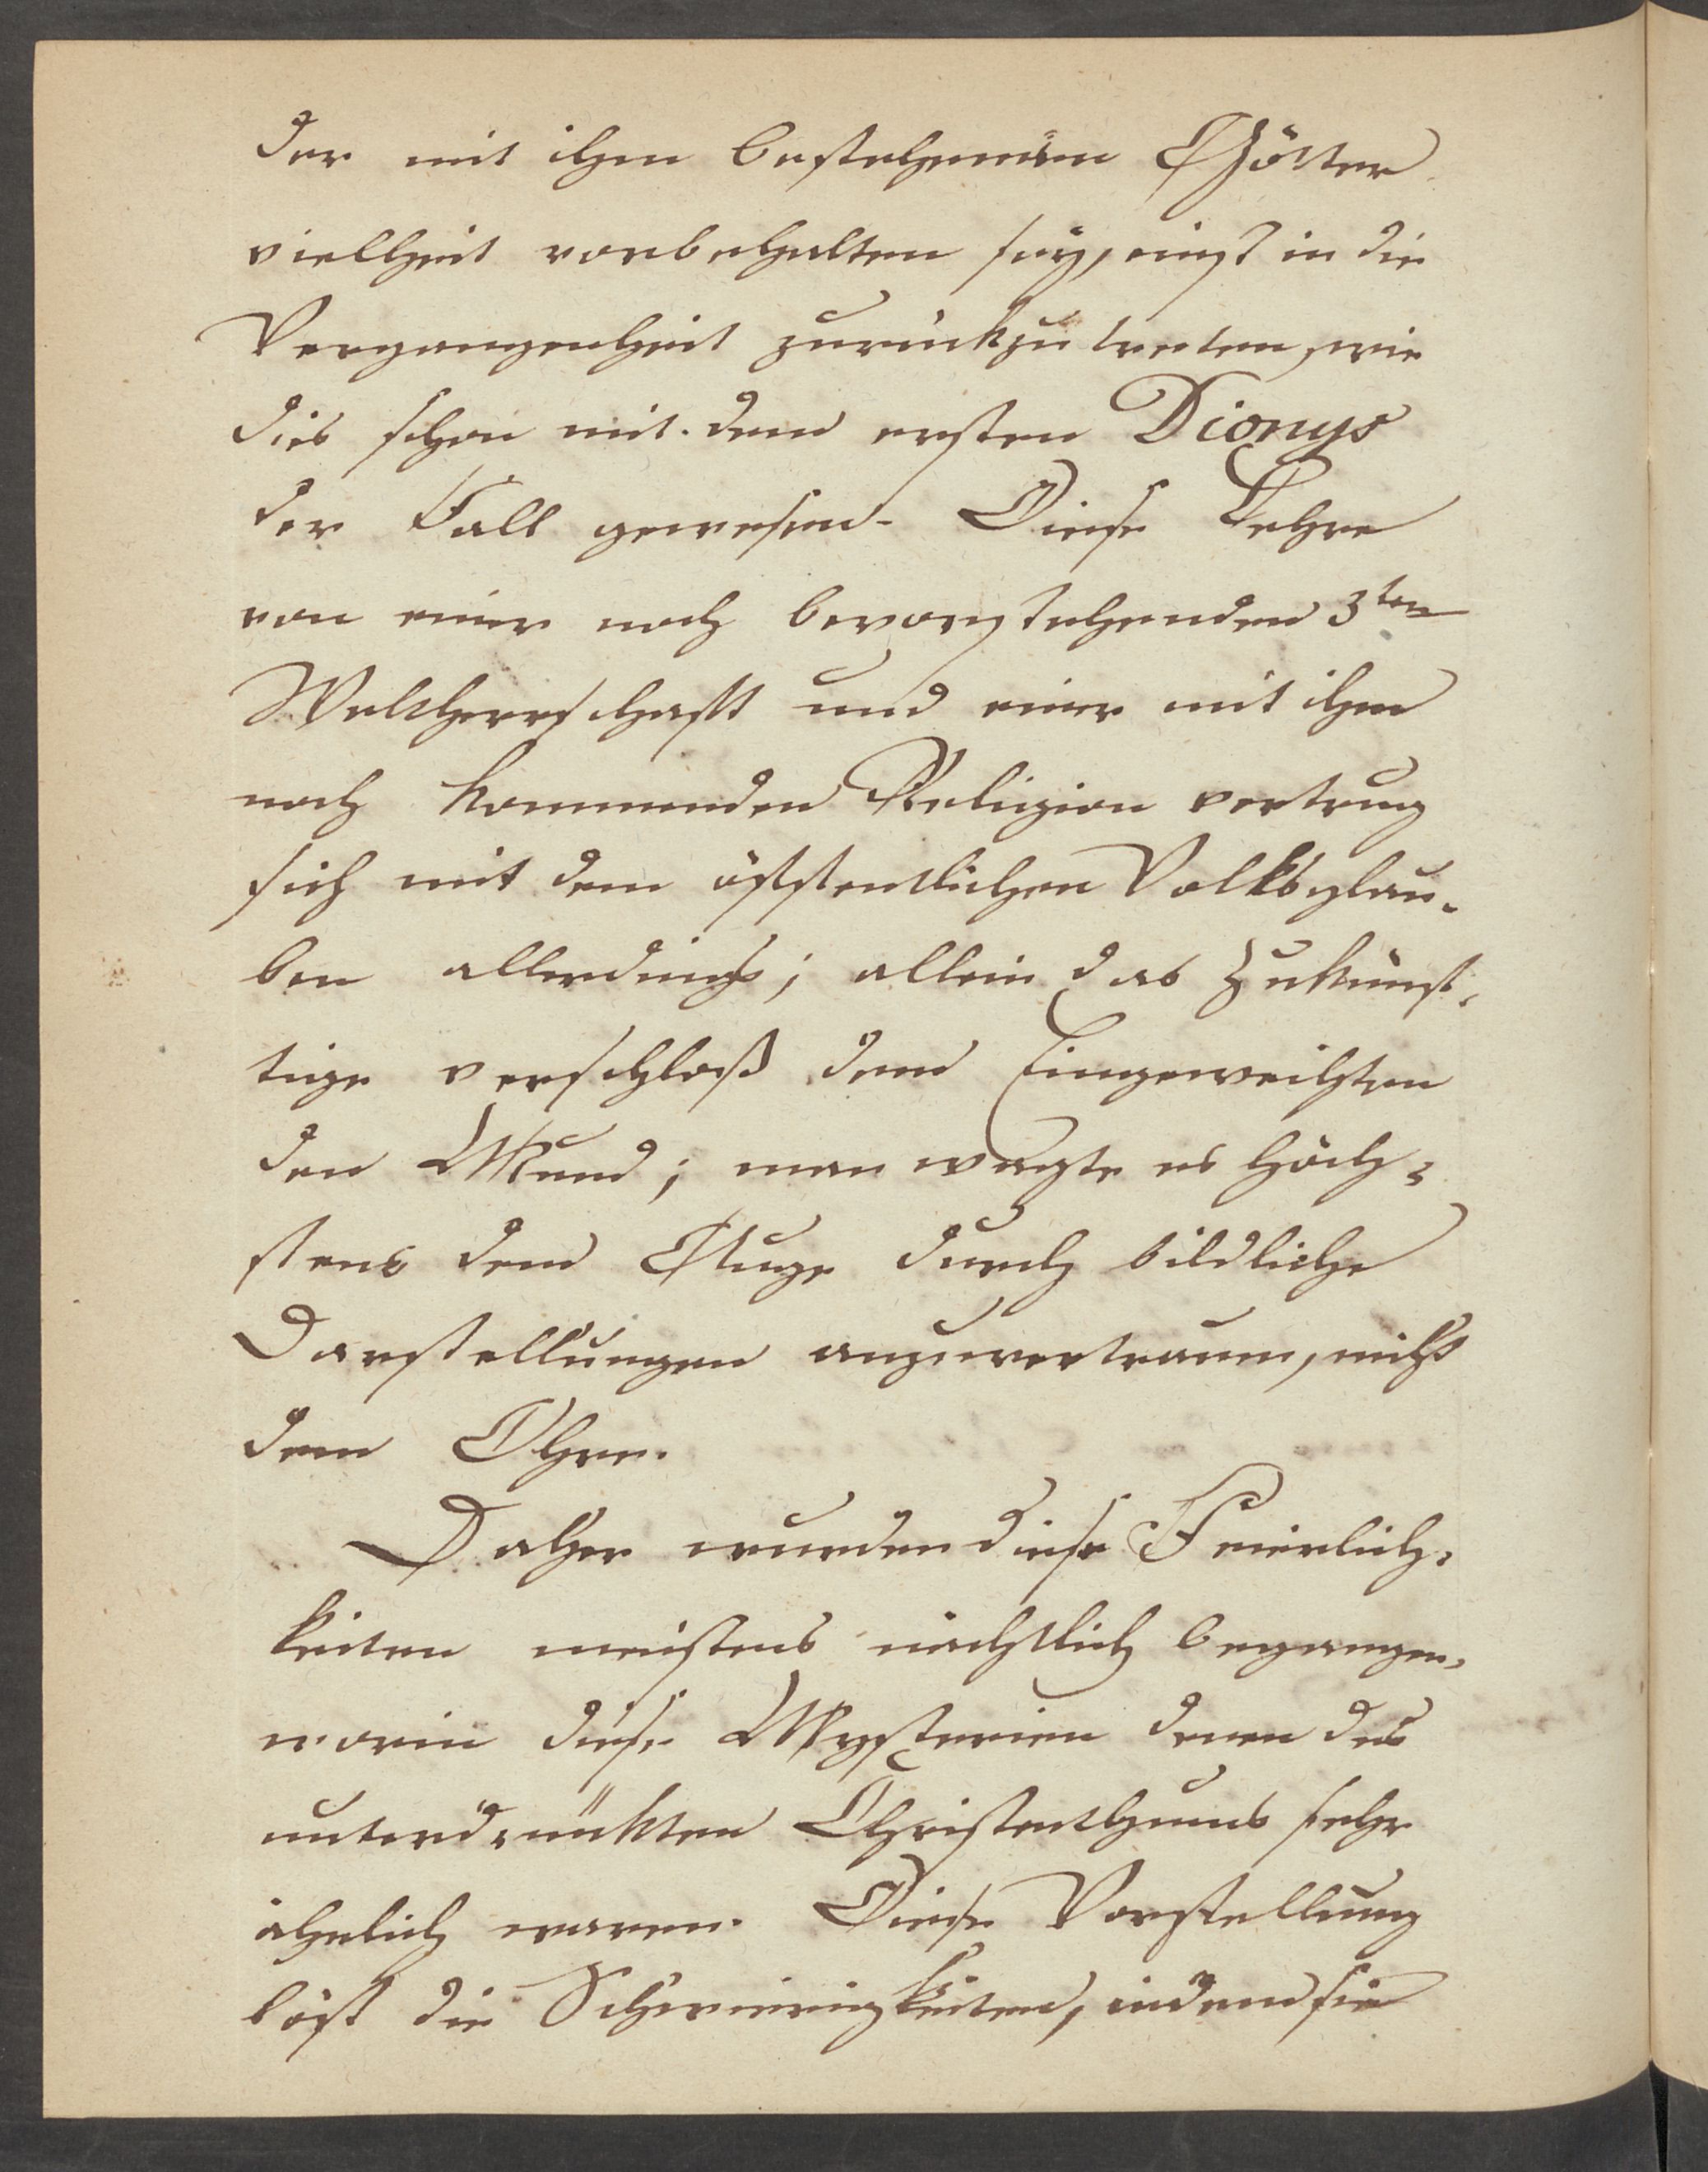 der mit ihm bestehenden Götter
vielheit vorbehalten sey, einst in die
Vergangenheit zurückzutreten, wie
dies schon mit dem ersten Dionys
der Fall gewesen. Diese Lehre
von einer noch bevorstehenden 3ten
Weltherrschaft und einer mit ihm
noch kommenden Religion vertrug
sich mit dem öffentlichen Volksglau-
ben allerdings; allein das Zukünf-
tige verschloß dem Eingeweihten
den Mund; man wagte es höch-
stens dem Auge durch bildliche
Darstellungen anzuvertrauen, nicht
dem Ohre.
Daher wurden diese Feierlich-
keiten meistens nächtlich begangen,
worin diese Mysterien denen des
unterdrückten Christenthums sehr
ähnlich waren. Diese Vorstellung
löst die Schwierigkeiten, indem sie